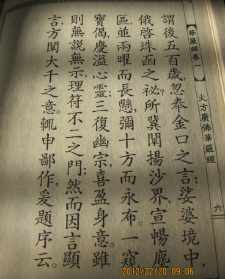 華嚴經卷一
大方廣佛華嚴經
六
謂後五百歲忽奉金口之言娑婆境中
俄啓珠函之祕所冀闡揚沙界宣暢塵
區並兩曜而長懸彌十方而永布一窺
寶偈慶溢心靈三復幽宗喜盈身意雖
則無說無示理符不二之門然而因言顯
言方闡大千之意輒申鄙作爰題序云
2012/02/20 09:06